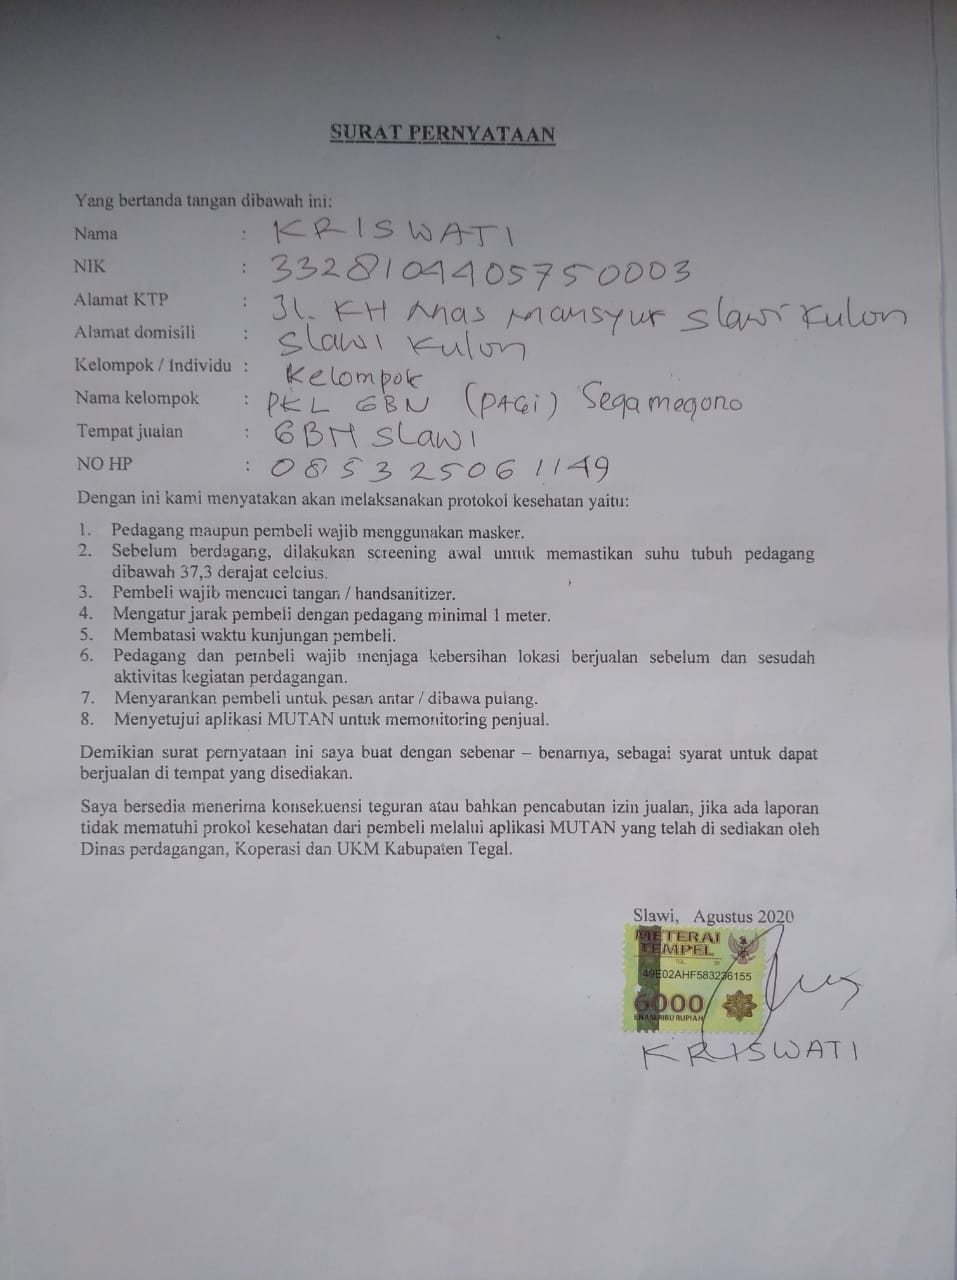 SURAT PERNYATAAN
Yang bertanda tangan dibawah ini:
Nama : KRISWATI
NIK : 3328104405750003
Alamat KTP : Jl. KH Mas Mansyur Slawi Kulon
Alamat domisili : Slawi Kulon
Kelompok / Individu : Kelompok
Nama kelompok : PKL GBN (PAGi) Segamegono
Tempat jualan : GBN Slawi
NO HP : 085325061149
Dengan ini kami menyatakan akan melaksanakan protokol kesehatan yaitu:
1. Pedagang maupun pembeli wajib menggunakan masker.
2. Sebelum berdagang, dilakukan screening awal untuk memastikan suhu tubuh pedagang
dibawah 37,3 derajat celcius.
3. Pembeli wajib mencuci tangan / handsanitizer.
4. Mengatur jarak pembeli dengan pedagang minimal 1 meter.
5. Membatasi waktu kunjungan pembeli.
6. Pedagang dan pembeli wajib menjaga kebersihan lokasi berjualan sebelum dan sesudah
aktivitas kegiatan perdagangan.
7. Menyarankan pembeli untuk pesan antar / dibawa pulang.
8. Menyetujui aplikasi MUTAN untuk memonitoring penjual.
Demikian surat pernyataan ini saya buat dengan sebenar – benarnya, sebagai syarat untuk dapat
berjualan di tempat yang disediakan.
Saya bersedia menerima konsekuensi teguran atau bahkan pencabutan izin jualan, jika ada laporan
tidak mematuhi prokol kesehatan dari pembeli melalui aplikasi MUTAN yang telah di sediakan oleh
Dinas perdagangan, Koperasi dan UKM Kabupaten Tegal.
Slawi, Agustus 2020
METERAI
TEMPEL
TGL. 20
49E02AHF583236155
6000
ENAM RIBU RUPIAH
KRISWATI